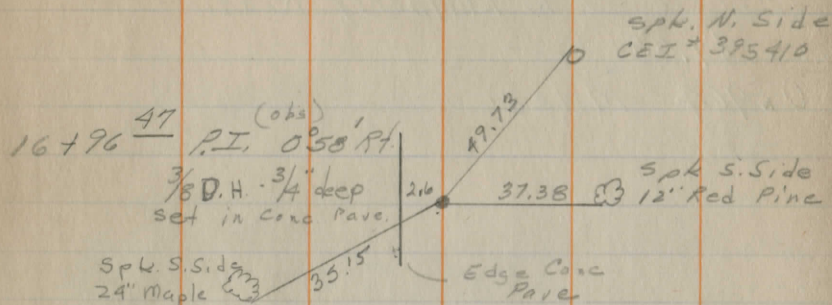 Spk. N. Side
CEI # 395410
49.73
(obs)
16+96 47 P.I. 0°58' Rt.
3/8 D.H. - 3/4" deep
set in Conc Pave.
2.6
37.38
Spk S. Side
12" Red Pine
35.15
Spk. S. Side
24" Maple
Edge Conc
Pave